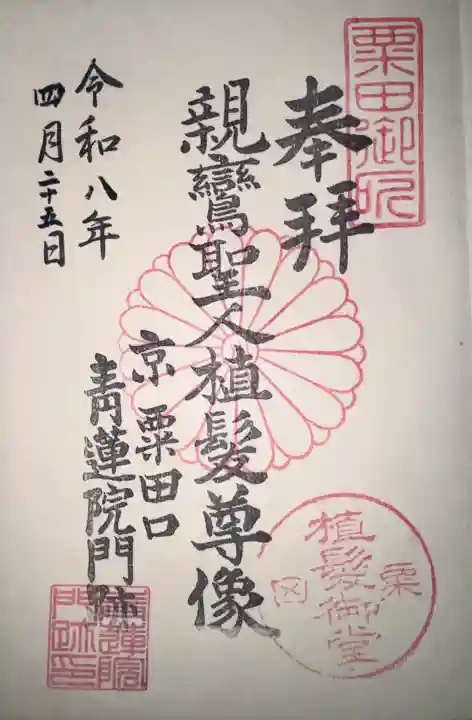 奉拝
親鸞聖人植髪尊像
京 粟田口
青蓮院門跡
令和八年
四月二十五日
粟田御所
粟田
植髪御堂
青蓮院
門跡印